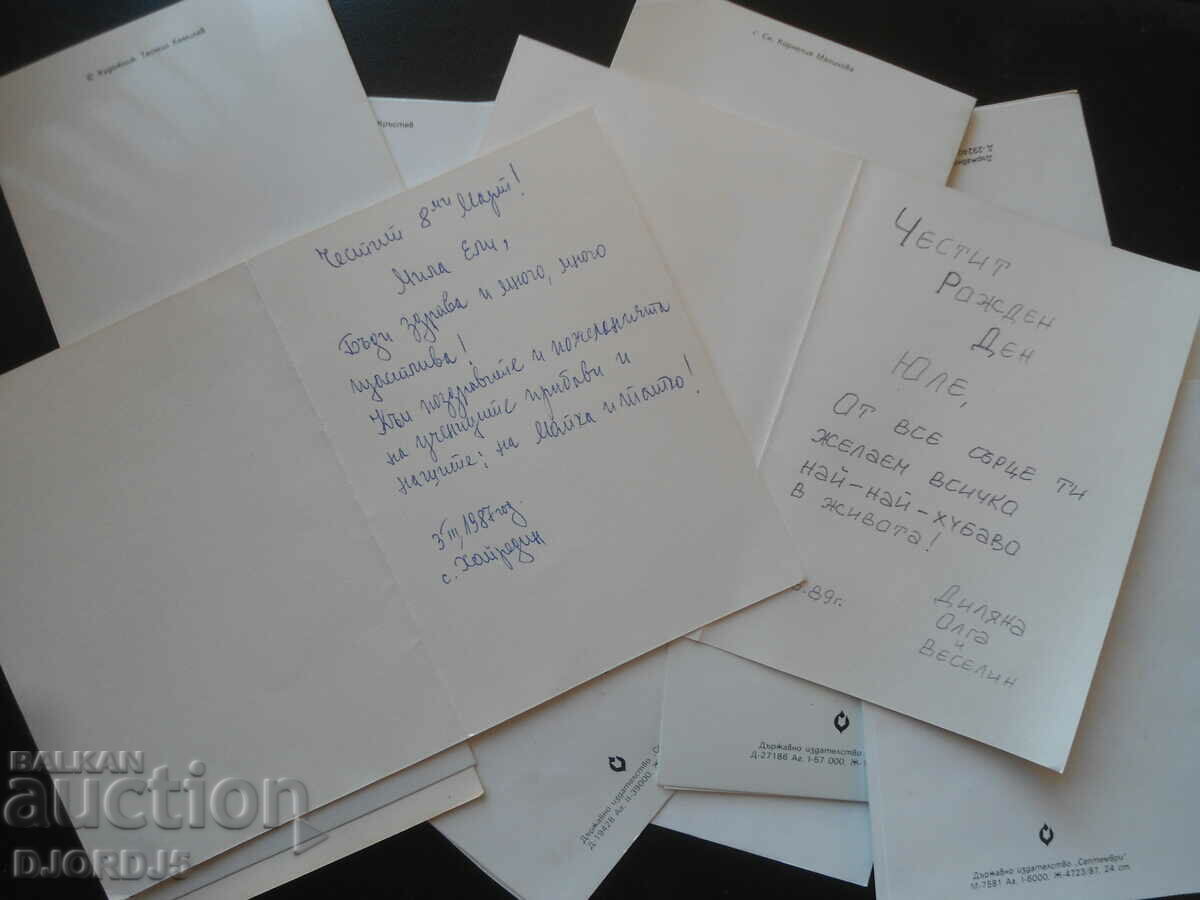 © Художник Теокии
Кръстев
с Сн. Корнелия Маринова
Честит 8ми Март!
Мила Ели,
Бъди здрава и много, много
щастлива!
Към поздравите и пожеланията
на учениците прибави и
нашите: на Майка и Татко!
3 III, 1987 год.
с. Хайредин
Честит
Рожден
Ден
Юле,
От все сърце ти
желаем всичко
най-най-хубаво
в живота!
.89г.
Диляна
Олга
и
Веселин
Държавно издателство
Д-19428 Аг. II-39000, Ж
Държавно издателство
Д-27186 Аг. I-57 000, Ж-
Държавно издателство „Септември"
М-7581 Аг. I-6000, Ж-4723/87, 24 ст.
BALKAN
auction
DJORDJ5